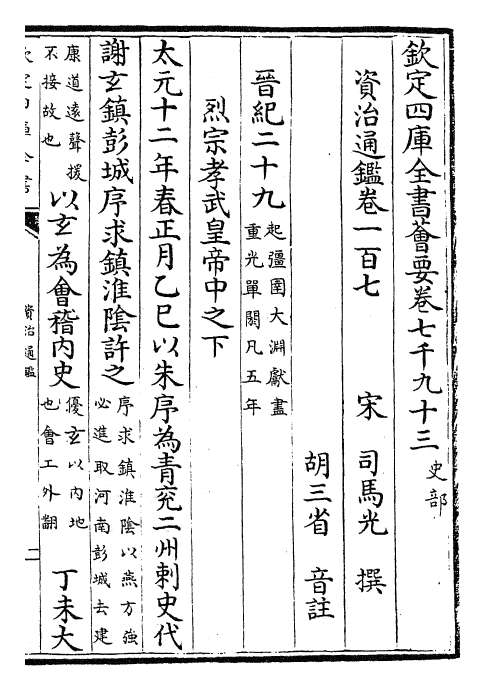 欽定四庫全書薈要卷七千九十三 史部
資治通鑑卷一百七 宋 司馬光 撰
胡三省 音註
晉紀二十九 起彊圉大淵獻盡重光單閼凡五年
烈宗孝武皇帝中之下
太元十二年春正月乙巳以朱序為青兖二州刺史代
謝玄鎮彭城序求鎮淮隂許之 序求鎮淮隂以燕方強必進取河南彭城去建
康道遠聲援不接故也 以玄為會稽内史 優玄以内地也會工外翻 丁未大
資治通鑑